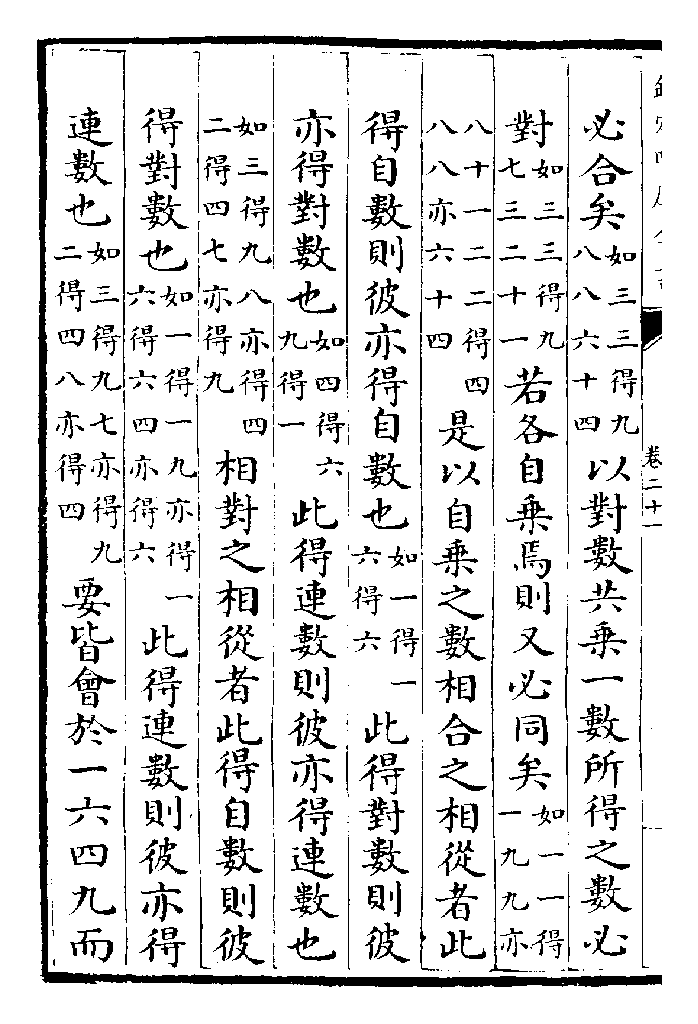 卷二十一
必合矣如三三得九八八六十四以對數共乗一數所得之數必
對如三三得九七三二十一若各自乗焉則又必同矣如一一得一九九亦
八十一二二得四八八亦六十四是以自乗之數相合之相從者此
得自數則彼亦得自數也如一得一六得六此得對數則彼
亦得對數也如四得六九得一此得連數則彼亦得連數也
如三得九八亦得四二得四七亦得九相對之相從者此得自數則彼
得對數也如一得一九亦得一六得六四亦得六此得連數則彼亦得
連數也如三得九七亦得九二得四八亦得四要皆會於一六四九而